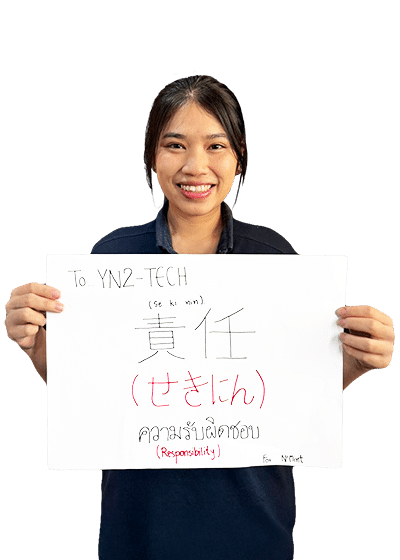 To YN2-TECH
(se ki nin)
責任
(せきにん)
ความรับผิดชอบ
(Responsibility)